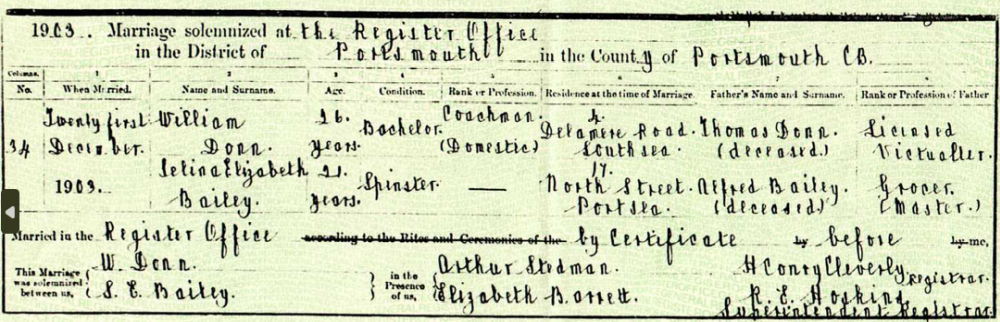 1903. Marriage solemnized at the Register Office
in the District of Portsmouth in the County of Portsmouth CB.
Columns. 1 2 3 4 5 6 7 8
No. When Married. Name and Surname. Age. Condition. Rank or Profession. Residence at the time of Marriage. Father's Name and Surname. Rank or Profession of Father
Twenty first William 26. Coachman. 4.
Bachelor. Delamere Road. Thomas Donn. Licensed
34 December. Donn. years. (Domestic) Southsea. (deceased.) Victualler.
Selina Elizabeth 21. 17.
1903. Spinster. — North Street. Alfred Bailey. Grocer.
Bailey. years. Portsea. (deceased.) (Master.)
Married in the Register Office according to the Rites and Ceremonies of the by Certificate by before by me,
This Marriage was solemnized between us, W. Donn. in the Presence of us, Arthur Stedman. Registrar.
S. E. Bailey. Elizabeth Barrett. R. E. Hoskins
Superintendent Registrar.